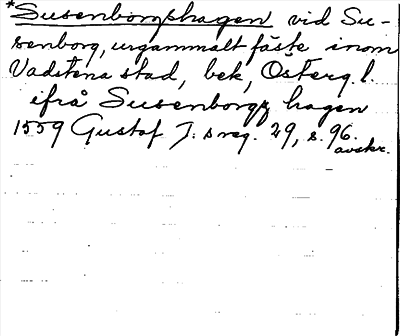 *Susenborgshagen vid Su-
senborg, urgammalt fäste inom
Vadstena stad, bek, Österg. l.
ifrå Susenborgz hagen
1559 Gustaf I: s reg. 29, s. 96.
avskr.